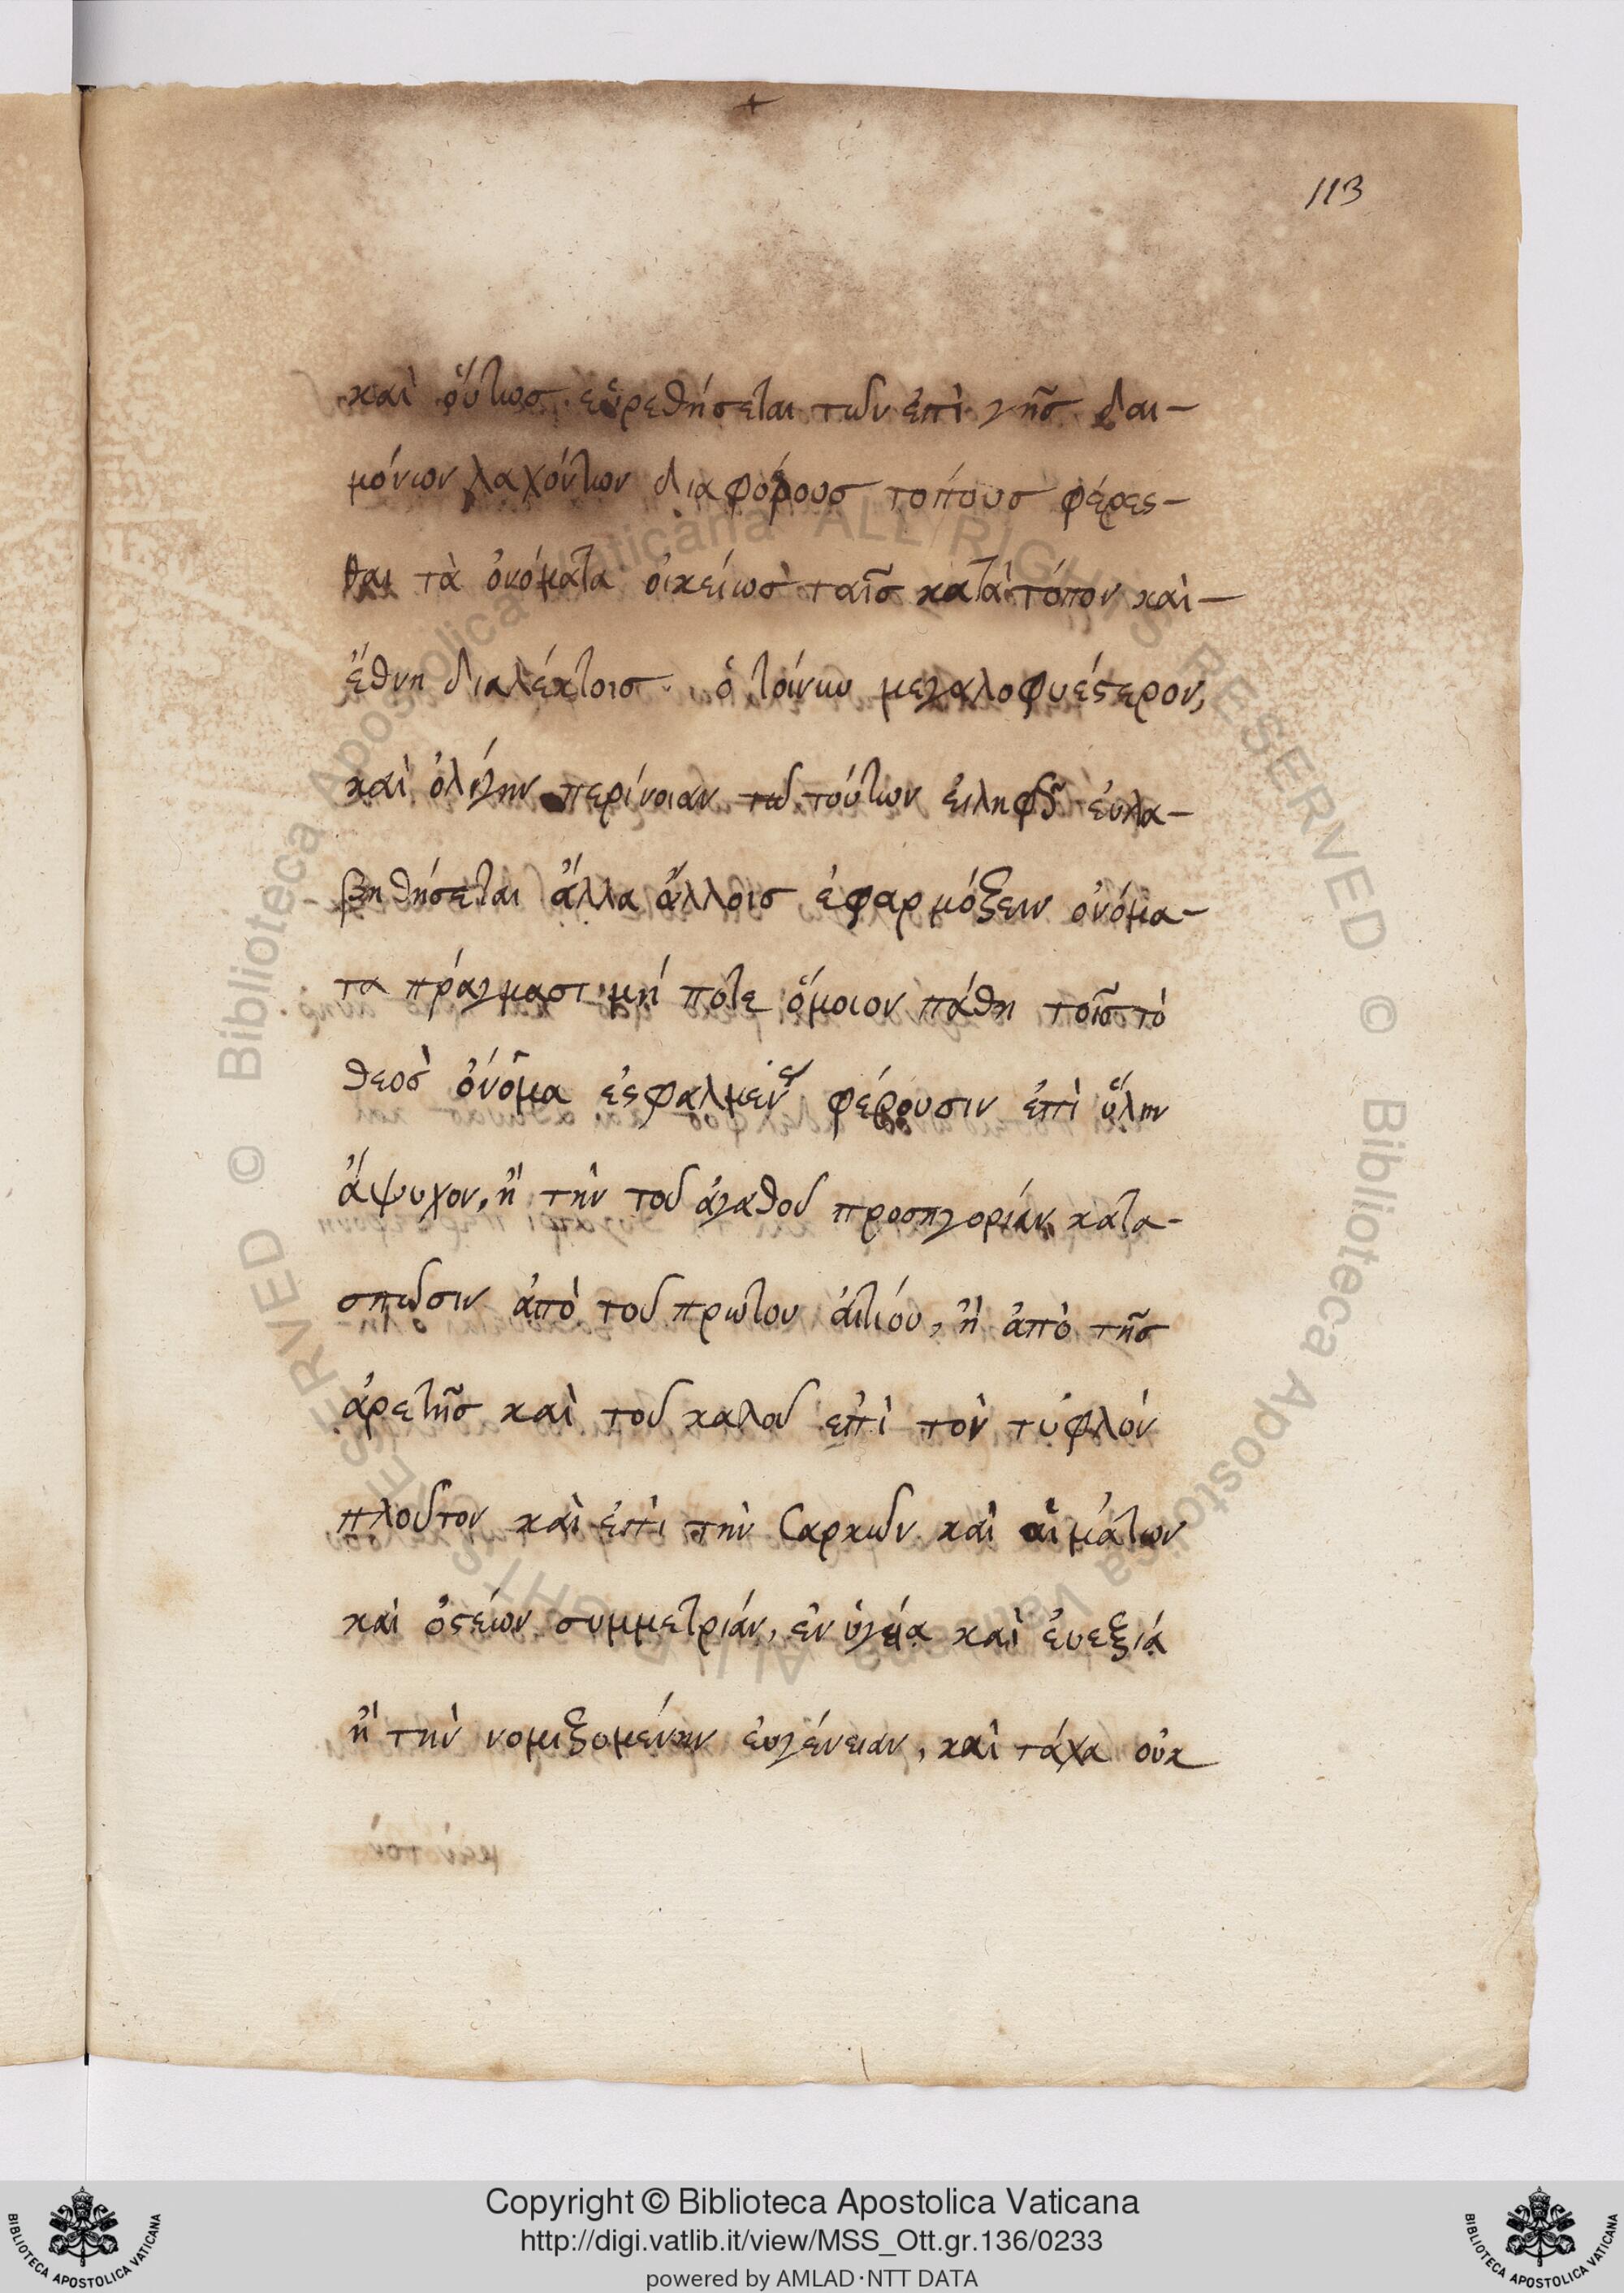 113
καὶ οὕτωσ εὑρεθήσεται τῶν ἐπὶ γῆσ δαι-
μόνων λαχόντων διαφόρουσ τοπουσ φέρεσ-
θαι τὰ ὀνόματα οἰκείωσ ταῖσ κατὰ τόπον καὶ-
ἔθνη διαλέκτοισ. ὁ τοίνυν μεγαλοφυέστερον,
καὶ ὀλίγην περίνοιαν τῶ τούτων εἰληφῶς εὐλα-
βηθήσεται ἄλλα ἄλλοισ ἐφαρμόζειν ὀνόμα-
τα πράγμασι μή ποτε ὅμοιον πάθη τοῖσ τὸ
θεοσ ὀνόμα ἐσφαλμένως φέρουσιν ἐπὶ ὕλην
ἄψυχον, ἢ τὴν τοῦ ἀγαθοῦ προσηγορίαν κατα-
σπῶσιν ἀπὸ τοῦ πρώτου αἰτίου, ἢ ἀπὸ τῆσ
ἀρετῆσ καὶ τοῦ καλοῦ ἐπὶ τὸν τυφλόν
πλοῦτον καὶ ἐπὶ τὴν σαρκῶν καὶ αἱμάτων
καὶ ὀστέων συμμετρίαν, ἐν ὑγεία καὶ εὐεξιά
ἢ τὴν νομιζομένην εὐγένειαν, καὶ τάχα οὐκ
Copyright © Biblioteca Apostolica Vaticana
http://digi.vatlib.it/view/MSS_Ott.gr.136/0233
powered by AMLAD·NTT DATA
BIBLIOTECA APOSTOLICA VATICANA
BIBLIOTECA APOSTOLICA VATICANA